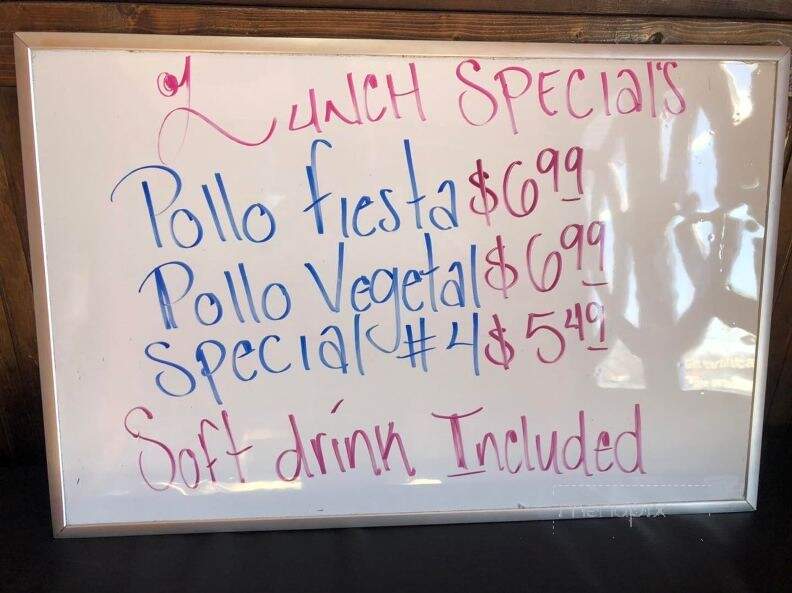 Lunch Special's
Pollo fiesta $6.99
Pollo Vegetal $6.99
Special #4 $5.49
Soft drink Included
menupix